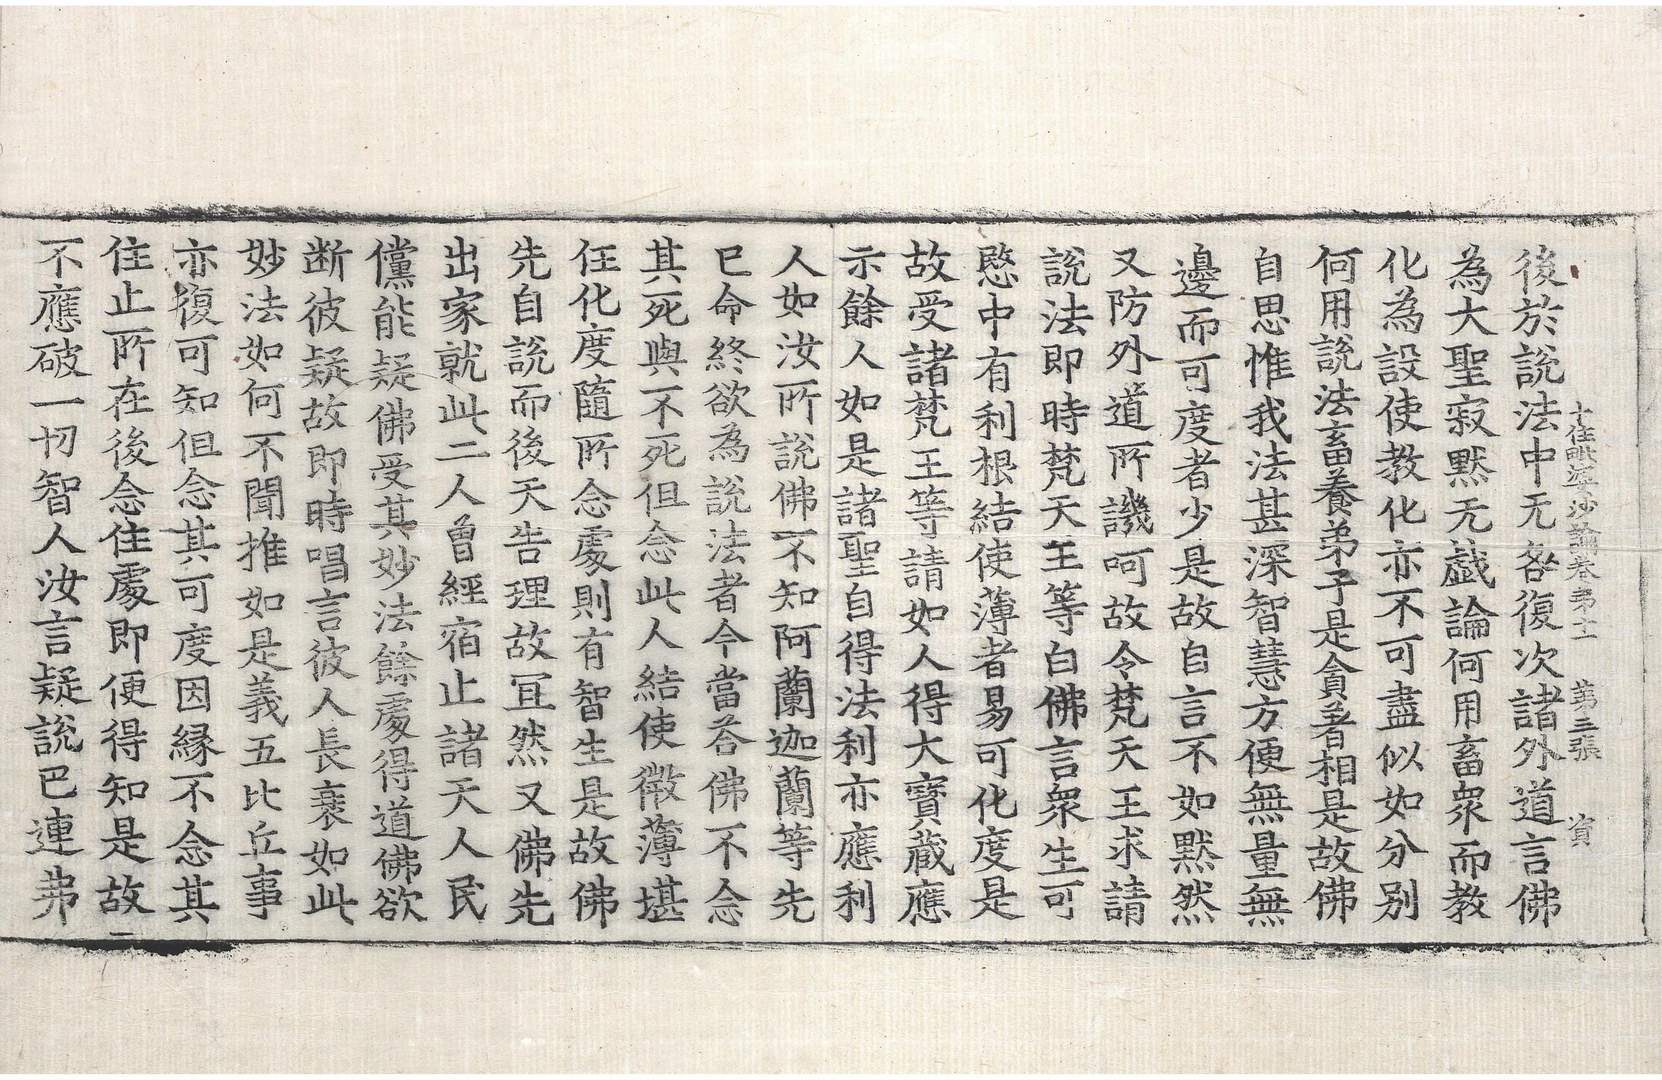 十住毗婆沙論卷苐十一　苐三張　資
後於說法中无咎復次諸外道言佛
為大聖寂默无戱論何用畜衆而教
化為設使教化亦不可盡似如分别
何用說法畜養弟子是貪著相是故佛
自思惟我法甚深智慧方便無量無
邊而可度者少是故自言不如默然
又防外道所譏呵故令梵天王求請
說法即時梵天王等白佛言衆生可
愍中有利根結使薄者易可化度是
故受諸梵王等請如人得大寶藏應
示餘人如是諸聖自得法利亦應利
人如汝所說佛不知阿蘭迦蘭等先
已命終欲為說法者今當荅佛不念
其死與不死但念此人結使微薄堪
任化度隨所念處則有智生是故佛
先自說而後天告理故冝然又佛先
出家就此二人曾經宿止諸天人民
儻能疑佛受其妙法餘處得道佛欲
断彼疑故即時唱言彼人長衰如此
妙法如何不聞推如是義五比丘事
亦復可知但念其可度因緣不念其
住止所在後念住處即便得知是故
不應破一切智人汝言疑說巴連弗